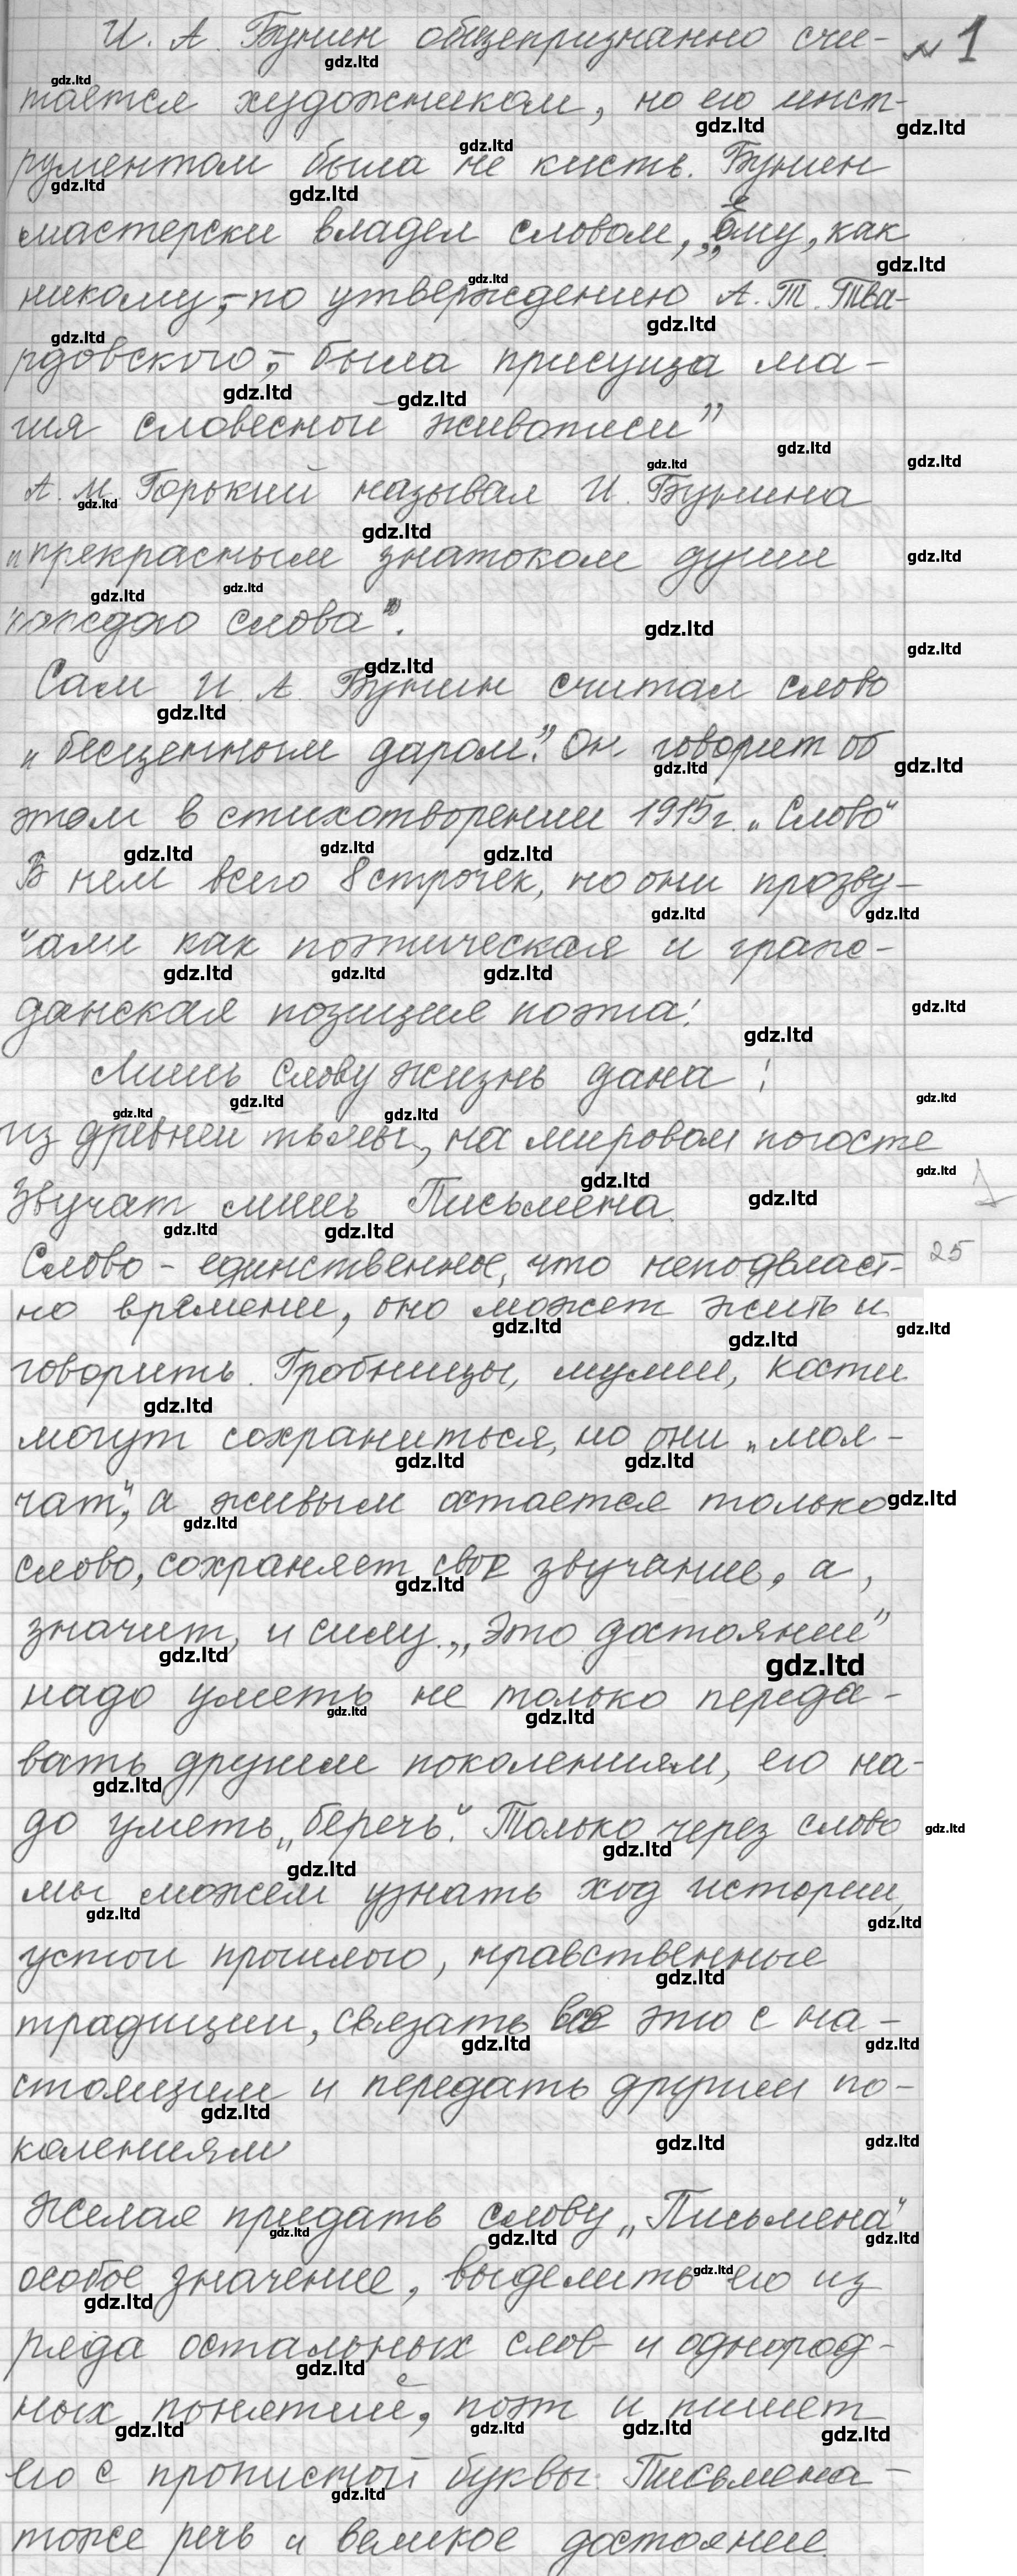 И. А. Бунин общепризнанно счи- №1
тается художником, но его инст-
рументом была не кисть. Бунин
мастерски владел словом, „Ему, как
никому, - по утверждению А. Т. Тва-
рдовского, - была присуща ма-
гия словесной живописи”
А. М. Горький называл И. Бунина
„прекрасным знатоком души
каждо слова”.
Сам И. А. Бунин считал слово
„бесценным даром”. Он говорит об
этом в стихотворении 1915г. „Слово“
В нем всего 8 строчек, но они прозву-
чали как поэтическая и граж-
данская позиция поэта!
Лишь слову жизнь дана!
Из древней тьмы, на мировом погосте
Звучат лишь Письмена.
Слово - единственное, что неподвласт-
25
но времени, оно может жить и
говорить. Гробницы, мумии, кости
могут сохраниться, но они „мол-
чат“, а живым остается только
слово, сохраняет свое звучание, а,
значит, и силу. „Это достояние”
надо уметь не только переда-
вать другим поколениям, его на-
до уметь „беречь“. Только через слово
мы можем узнать ход истории,
устои прошлого, нравственные
традиции, связать все это с на-
стоящим и передать другим по-
колениям
Желая придать слову „Письмена“
особое значение, выделить его из
ряда остальных слов и однород-
ных понятий, поэт и пишет
его с прописной буквы. Письмена -
тоже речь и великое достояние.
gdz.ltd